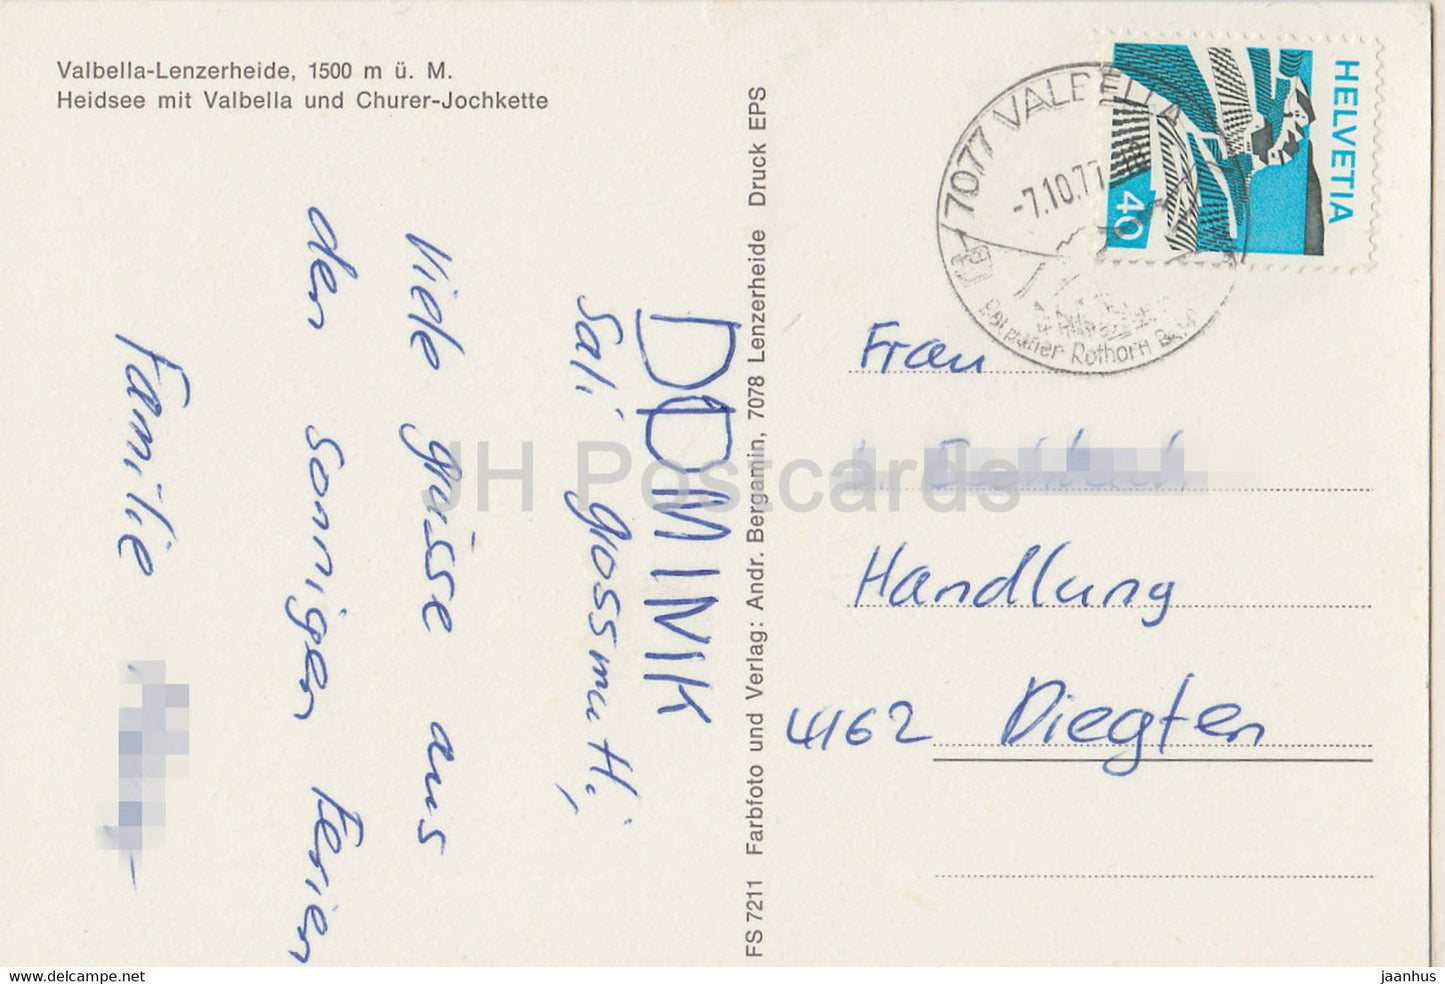 Valbella-Lenzerheide, 1500 m ü. M.
Heidsee mit Valbella und Churer-Jochkette
DOMINIK
Sali grossmutti,
Viele grüsse aus
den sonnigen Ferien
Familie
FS 7211 Farbfoto und Verlag: Andr. Bergamin, 7078 Lenzerheide Druck EPS
7077 VALBELLA
-7.10.77
Rothorn
HELVETIA
40
Frau
Handlung
4162 Diegten
JH Postcards
www.delcampe.net
jaanhus